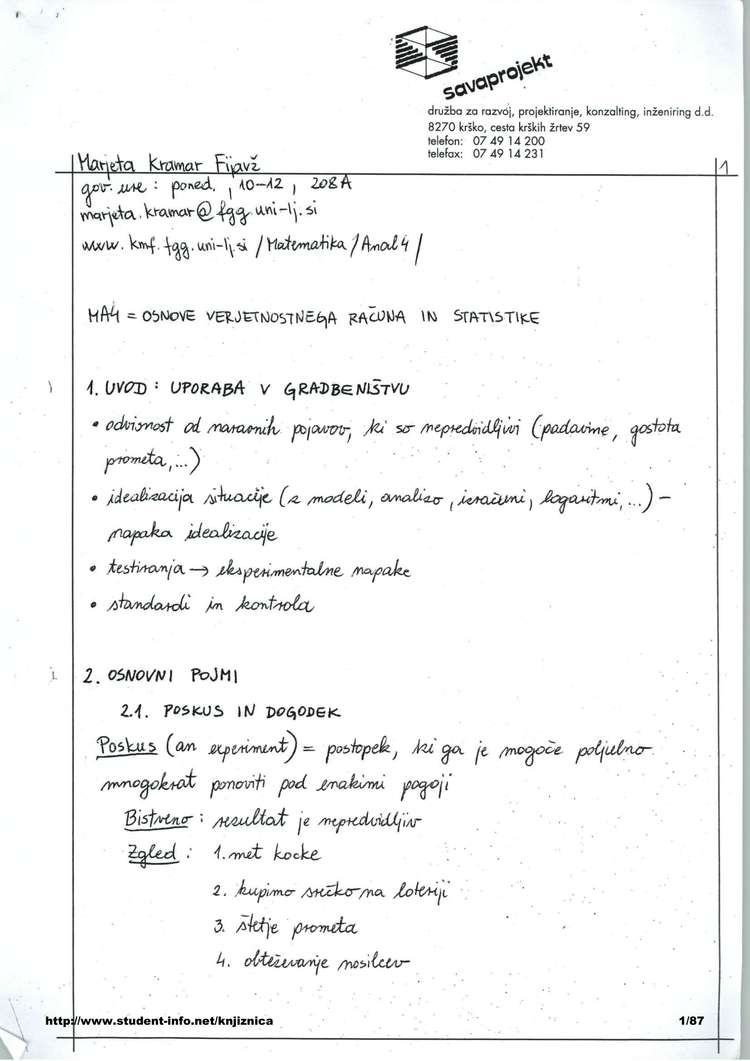 savaprojekt
družba za razvoj, projektiranje, konzalting, inženiring d.d.
8270 krško, cesta krških žrtev 59
telefon: 07 49 14 200
telefax: 07 49 14 231
Marjeta Kramar Fijavž
1
gov. ure : poned. , 10-12 , 208A
marjeta.kramar@fgg.uni-lj.si
www.kmf.fgg.uni-lj.si/Matematika/Anal4/
MA4 = OSNOVE VERJETNOSTNEGA RAČUNA IN STATISTIKE
1. UVOD : UPORABA V GRADBENIŠTVU
• odvisnost od naravnih pojavov, ki so nepredvidljivi (padavine, gostota
prometa,...)
• idealizacija situacije (z modeli, analizo, izračuni, logaritmi,...) -
napaka idealizacije
• testiranja → eksperimentalne napake
• standardi in kontrola
2. OSNOVNI POJMI
2.1. POSKUS IN DOGODEK
Poskus (an experiment) = postopek, ki ga je mogoče poljubno
mnogokrat ponoviti pod enakimi pogoji
Bistveno : rezultat je nepredvidljiv
Zgled : 1. met kocke
2. kupimo srečko na loteriji
3. štetje prometa
4. obteževanje nosilcev
http://www.student-info.net/knjiznica
1/87